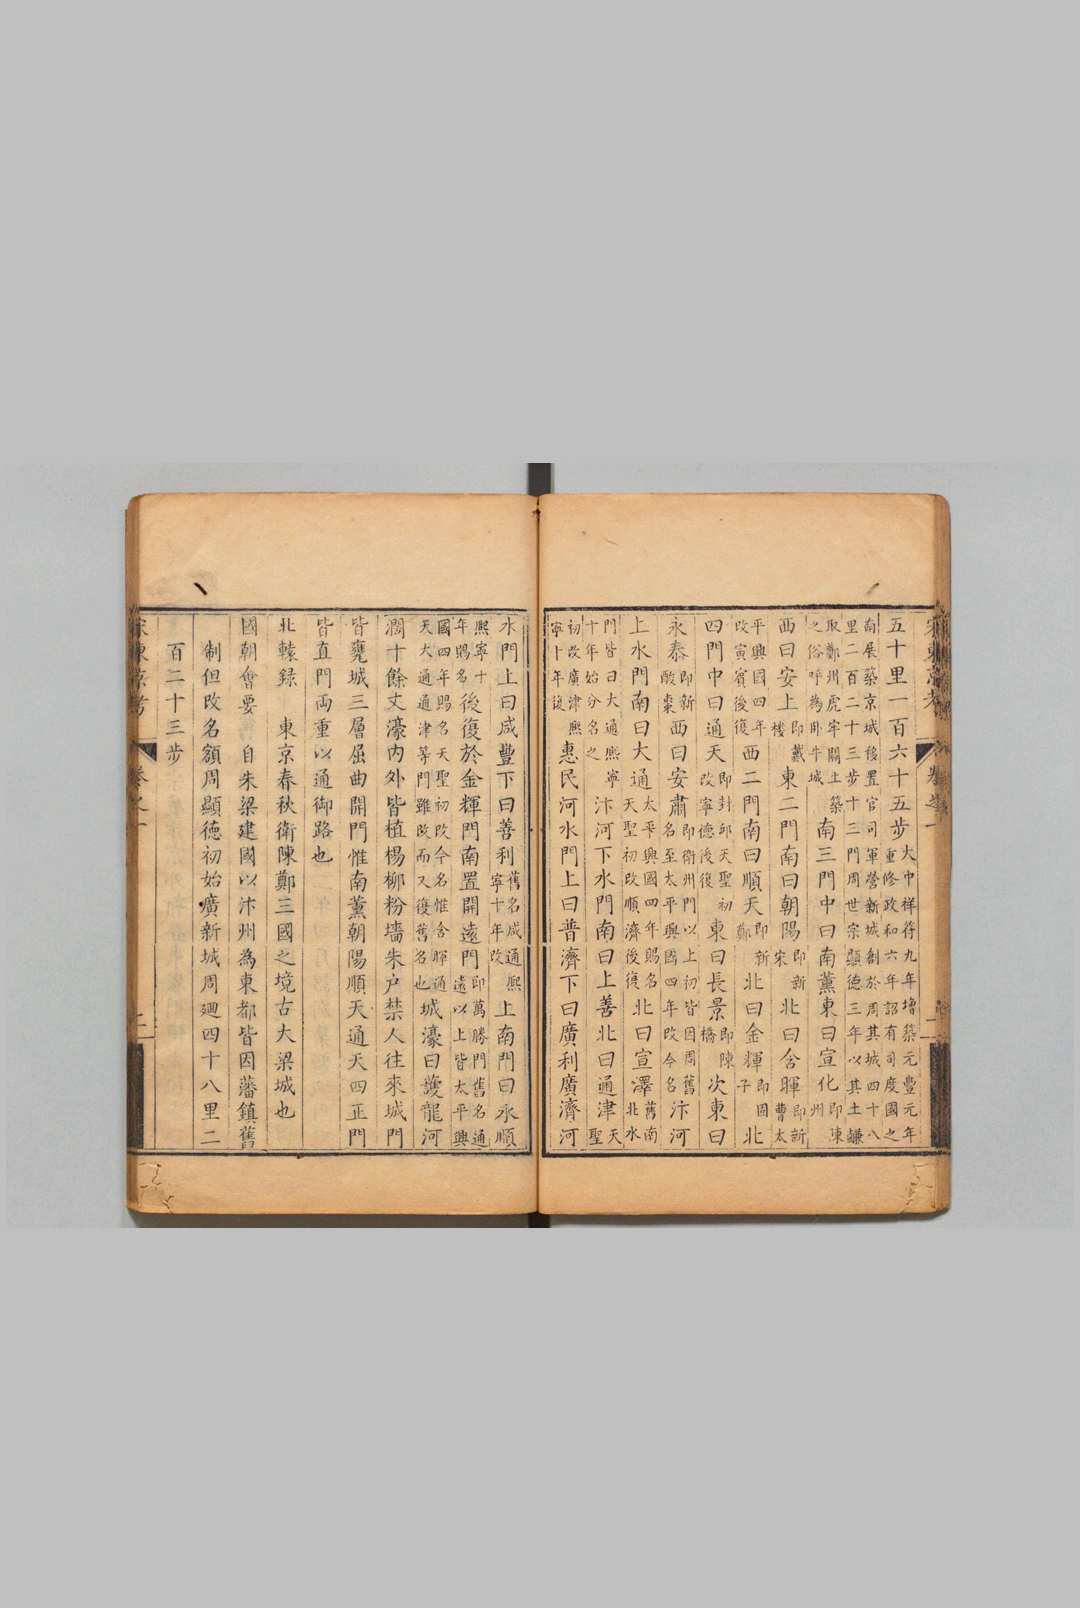 五十里一百六十五步大中祥符九年增築元豐元年重修政和六年詔有司度國之
南展築京城移置官司軍營新城創於周其城四十八里二百二十三步十三門周世宗顯德三年以其土鹻
取鄭州虎牢關土築之俗呼為卧牛城南三門中曰南薰東曰宣化即陳州
西曰安上即戴樓東二門南曰朝陽即新宋北曰含暉即新曹太
平興國四年改寅賓後復西二門南曰順天即新鄭北曰金輝即固子北
四門中曰通天即封邱天聖初改寧德後復東曰長景即陳橋次東曰
永泰即新酸棗西曰安肅即衛州門以上初皆因周舊名至太平興國四年改今名汴河
上水門南曰大通太平興國四年賜名天聖初改順濟後復北曰宣澤舊南北水
門皆曰大通熙寧十年始分名之汴河下水門南曰上善北曰通津天聖
初改廣津熙寧十年復惠民河水門上曰普濟下曰廣利廣濟河
水門上曰咸豐下曰善利舊名咸通熙寧十年改上南門曰永順
熙寧十年賜名後復於金輝門南置開遠門即萬勝門舊名通遠以上皆太平興
國四年賜名天聖初改今名惟含暉通天大通通津等門雖改而又復舊名也城濠曰護龍河
濶十餘丈濠内外皆植楊柳粉墻朱户禁人往來城門
皆甕城三層屈曲開門惟南薰朝陽順天通天四正門
皆直門兩重以通御路也
北轅録 東京春秋衛陳鄭三國之境古大梁城也
國朝會要 自朱梁建國以汴州為東都皆因藩鎮舊
制但改名額周顯德初始廣新城周迴四十八里二
百二十三步
宋東京考
卷之一
二